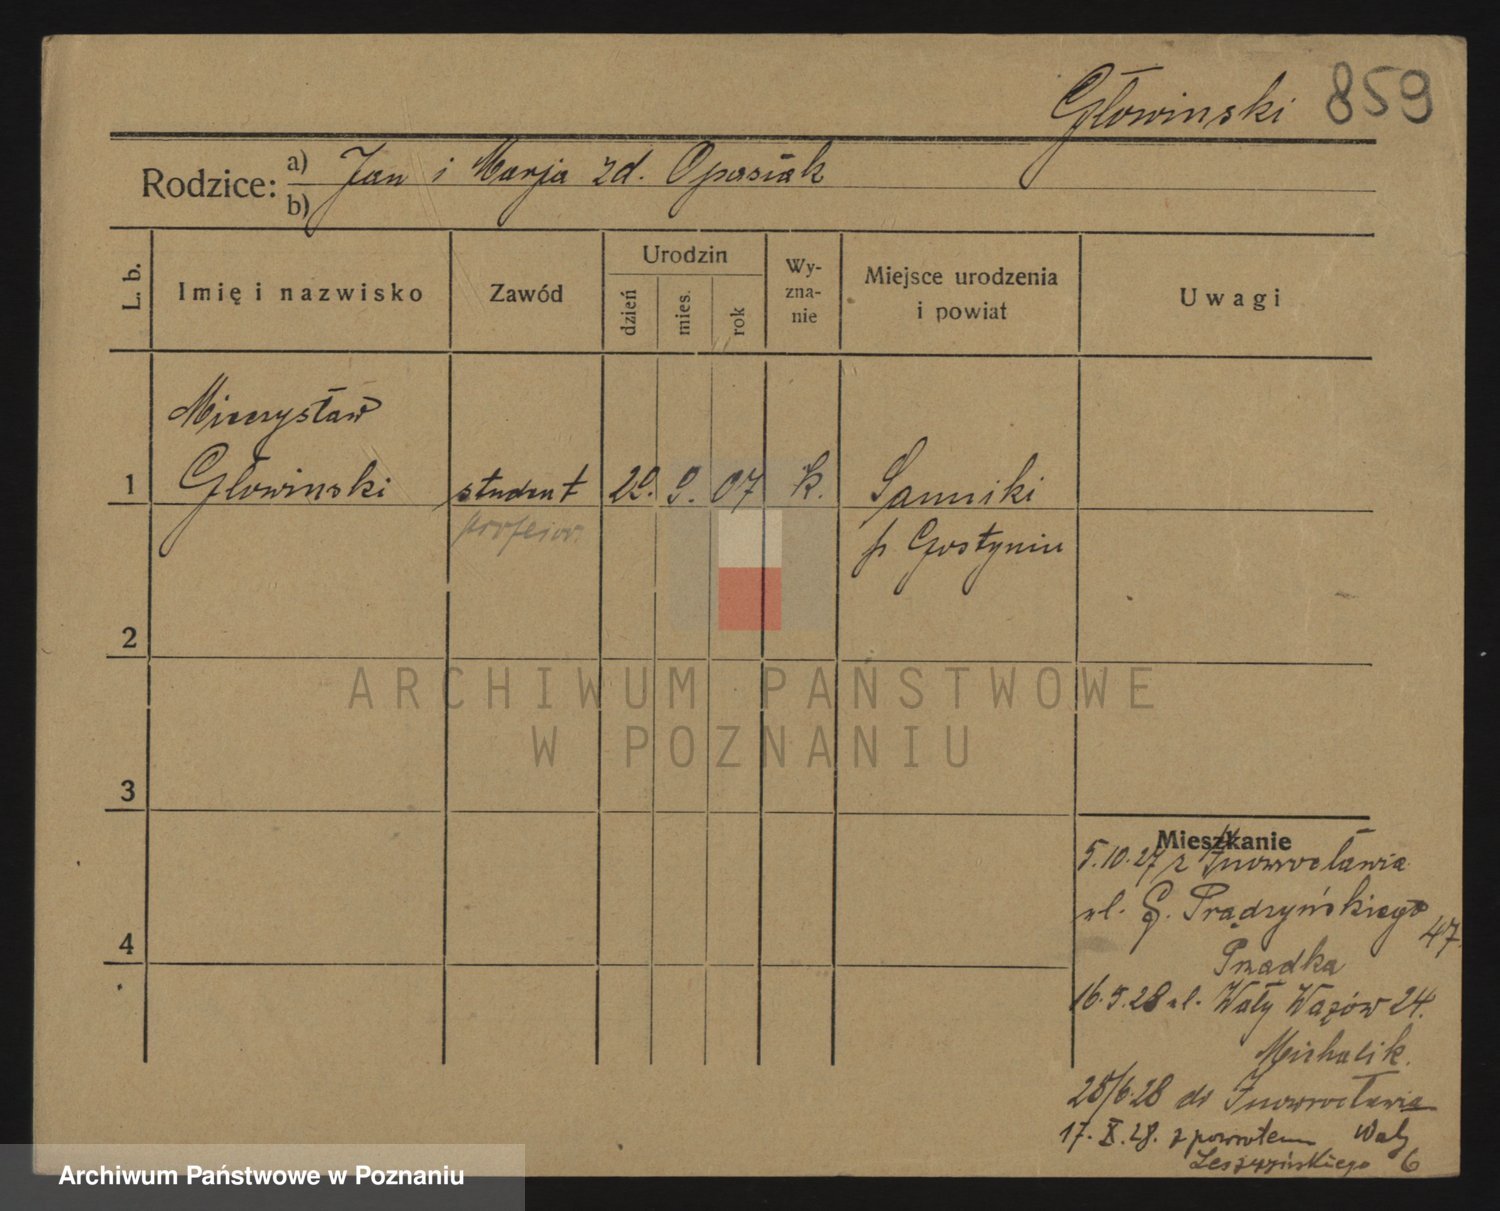 Głowinski 859
Rodzice: a) Jan i Marja zd. Opasiak
b)
L. b.
Imię i nazwisko
Zawód
Urodzin
dzień
mies.
rok
Wy-
zna-
nie
Miejsce urodzenia
i powiat
Uwagi
Mieczysław
1 Głowinski student 29. 9. 07 k. Sanniki
profesor. p Gostynin
2
ARCHIWUM PAŃSTWOWE
W POZNANIU
3
Mieszkanie
5.10.27 z Inowrocławia
ul. G. Prądzyńskiego 47.
4
Prządka
16.5.28 ul. Wały Wazów 24.
Michalik.
28/6.28 do Inowrocławia
17. X. 28. z powrotem Wały
Leszczyńskiego 6
Archiwum Państwowe w Poznaniu